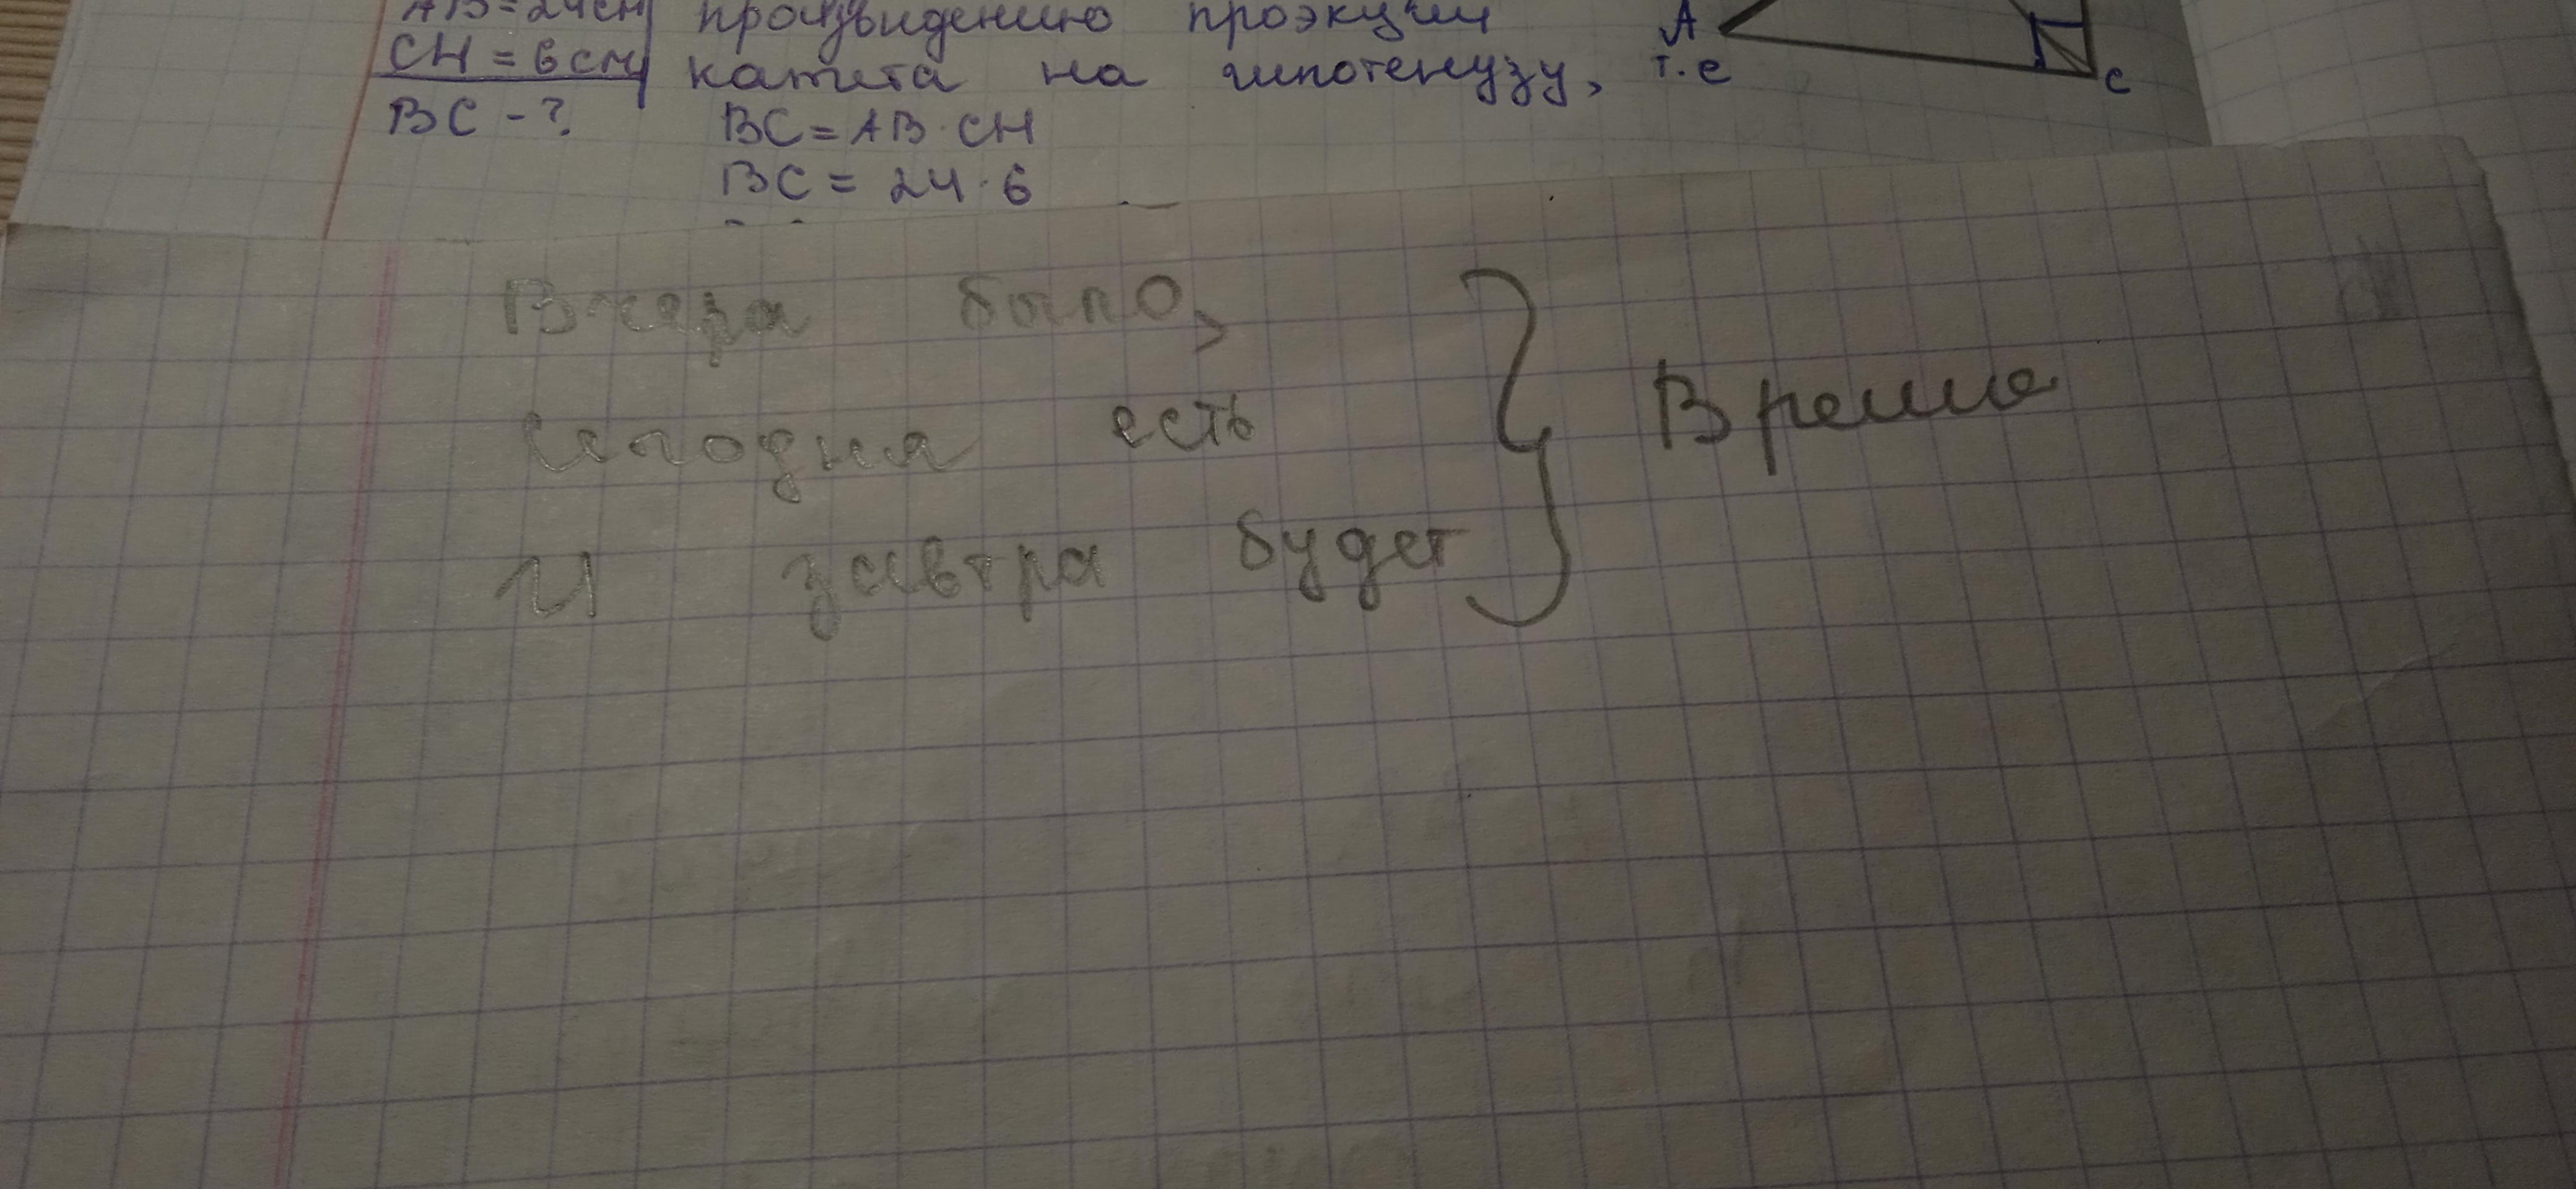 AB = 24см
CH = 6см
BC - ?
произвидению проэкции
катета на гипотенузу, т.е
BC = AB · CH
BC = 24 · 6
A
C
Вчера было,
сегодня есть
и завтра будет
Время